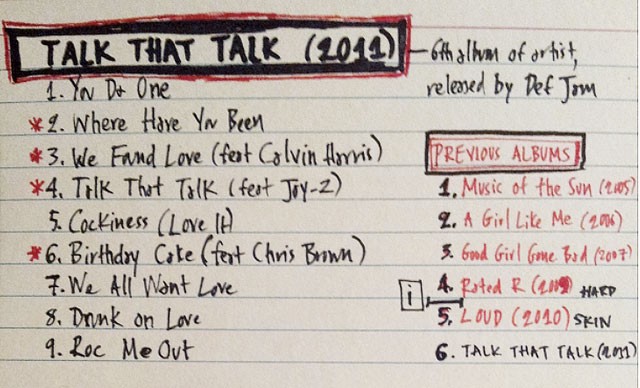 TALK THAT TALK (2011)
1. You Da One
*2. Where Have You Been
*3. We Found Love (feat Calvin Harris)
*4. Talk That Talk (feat Jay-Z)
5. Cockiness (Love It)
*6. Birthday Cake (feat Chris Brown)
7. We All Want Love
8. Drunk on Love
9. Roc Me Out
— 6th album of artist,
released by Def Jam
PREVIOUS ALBUMS
1. Music of the Sun (2005)
2. A Girl Like Me (2006)
3. Good Girl Gone Bad (2007)
i 4. Rated R (2009) HARD
5. LOUD (2010) SKIN
6. TALK THAT TALK (2011)